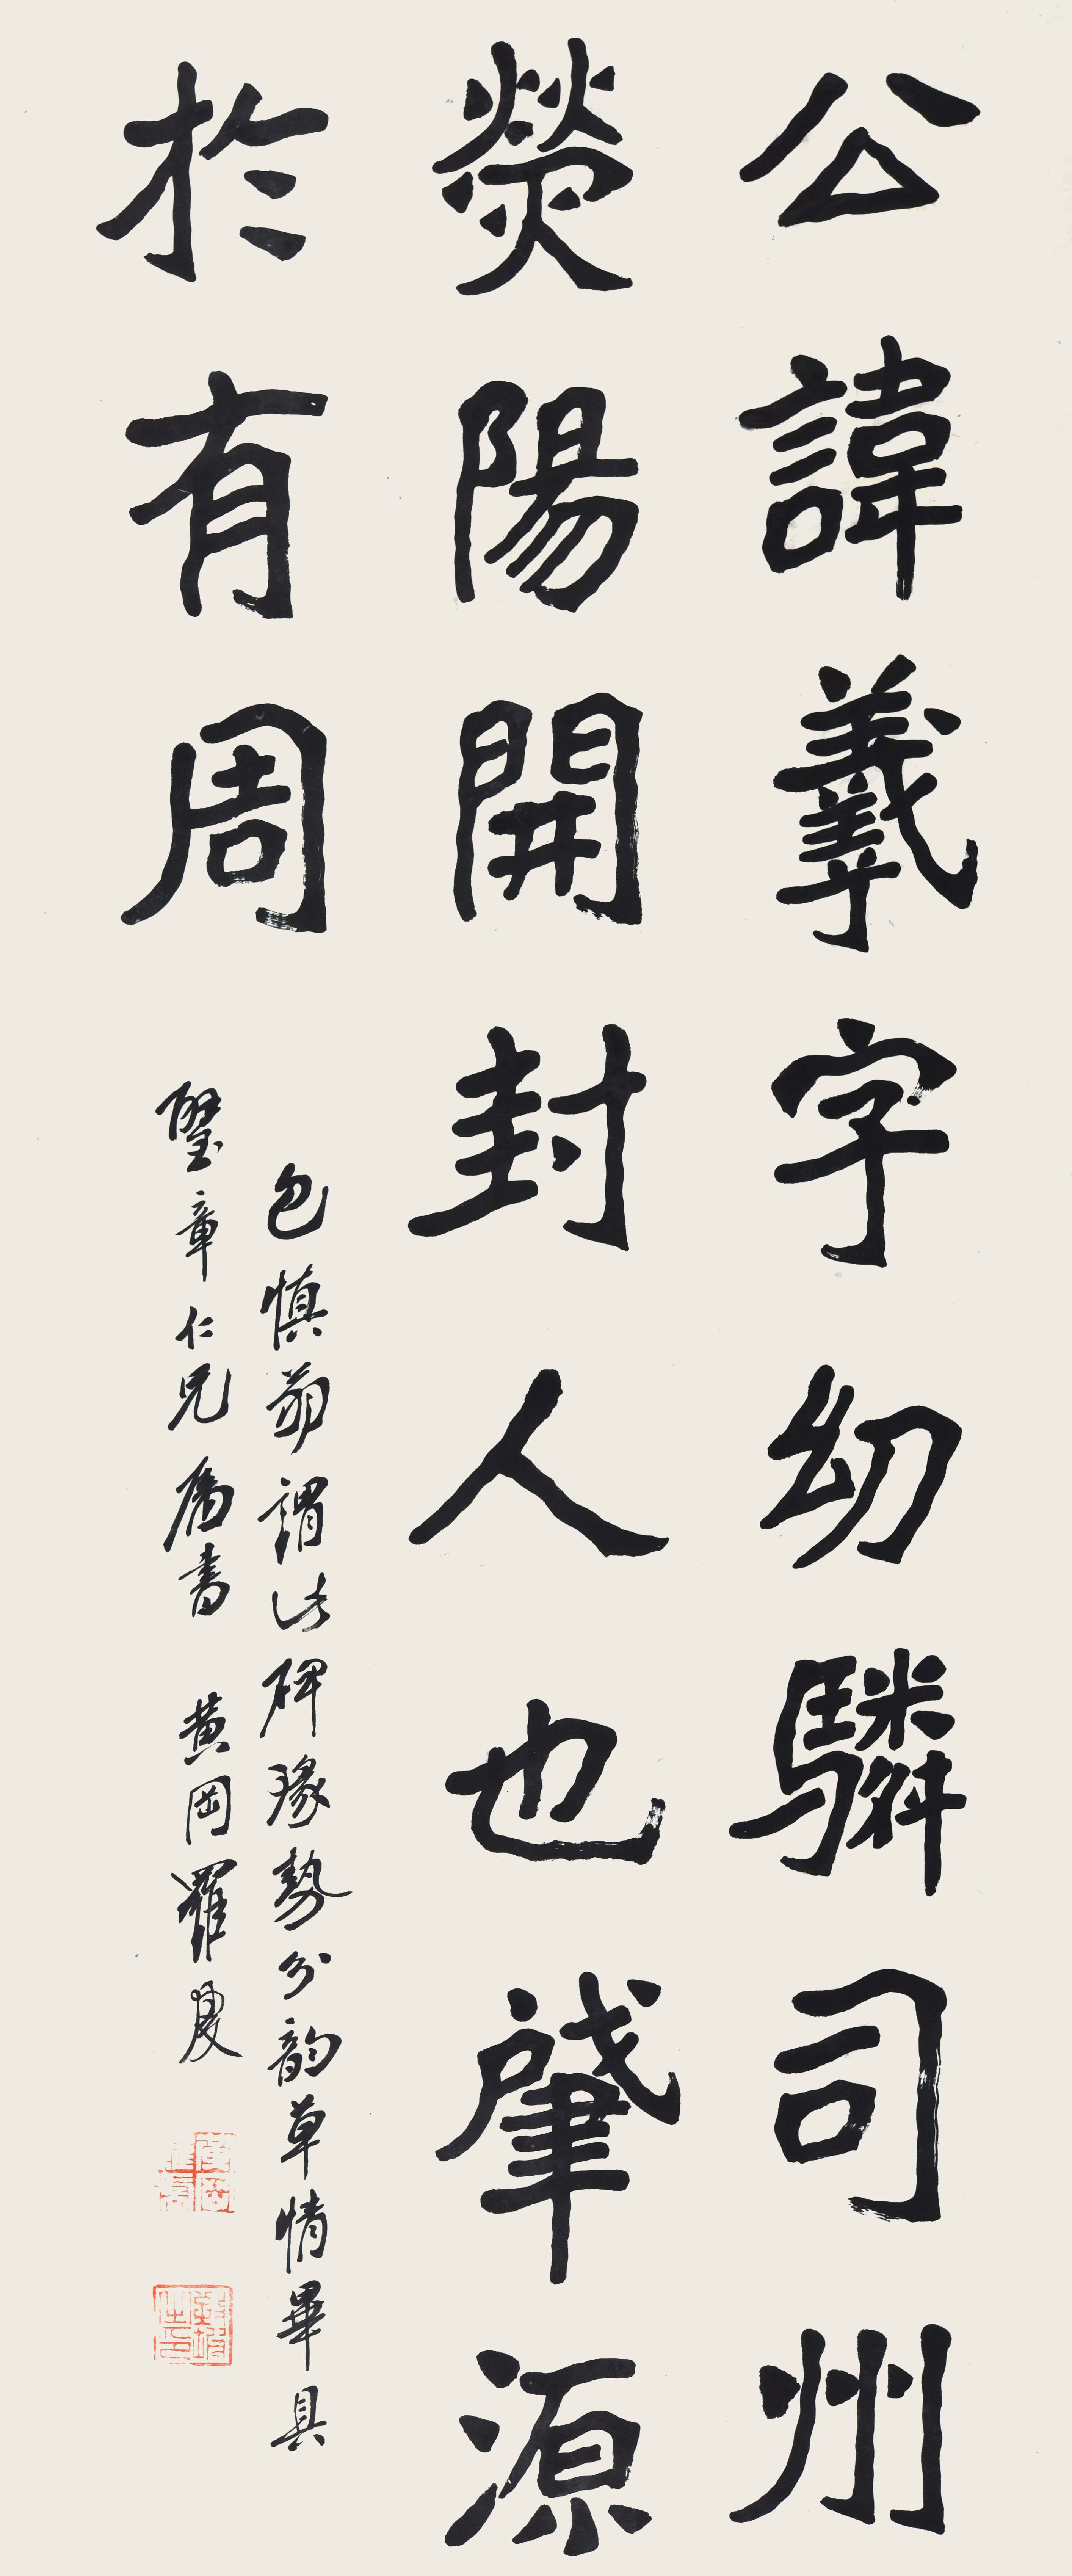 公諱羲字幼驎司州
熒陽開封人也肇源
於有周
包慎翁謂此碑瑑勢分韵草情畢具
章仁兄属書 黄岡羅